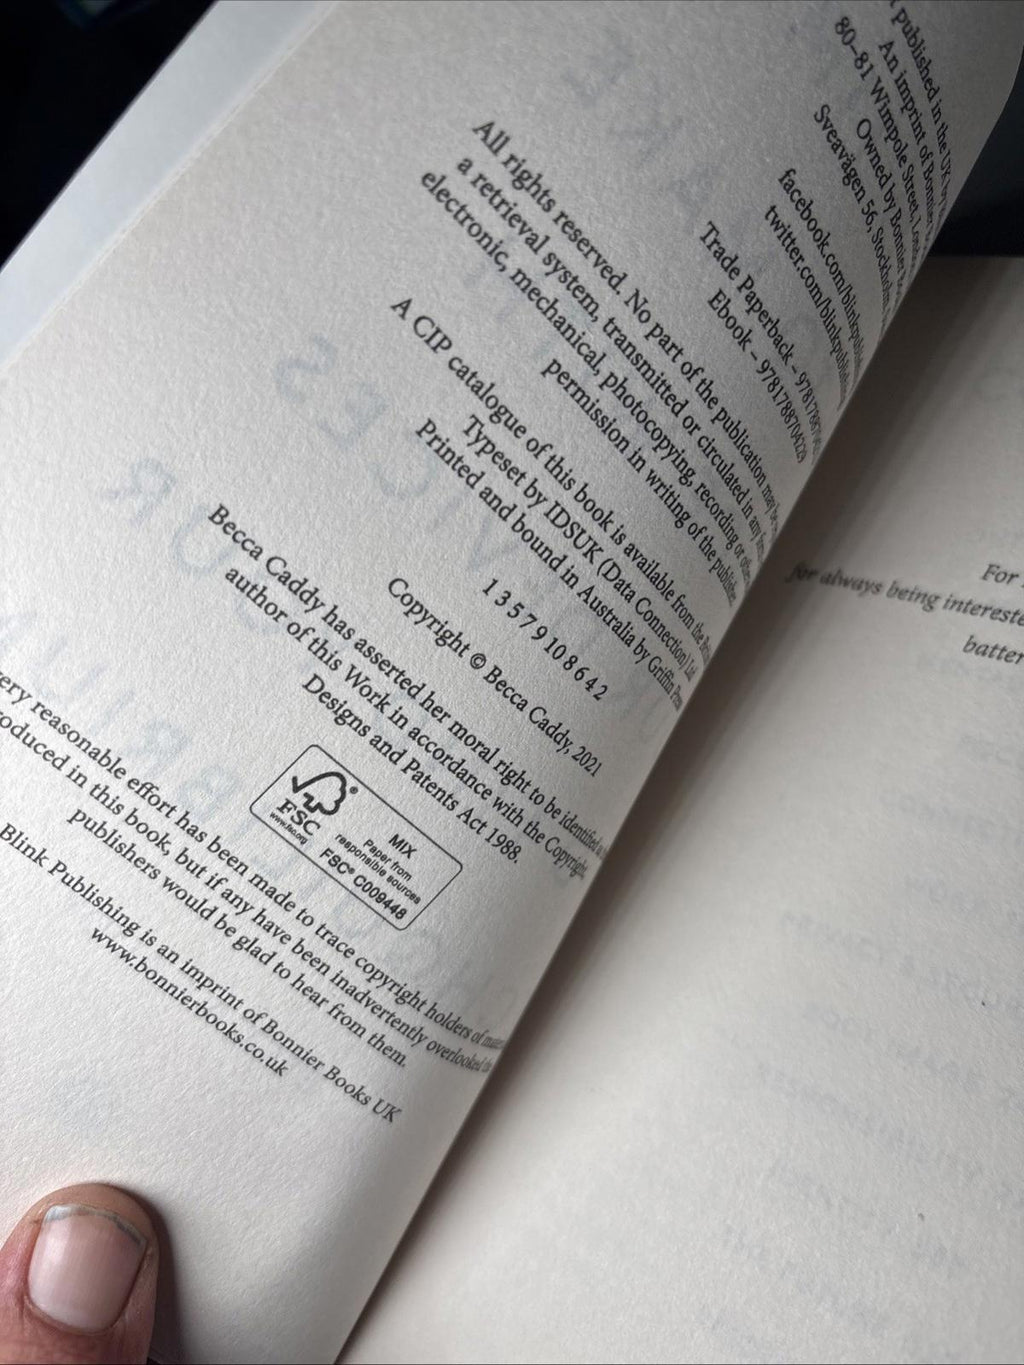 published in the UK by
An imprint of Bonnier
80–81 Wimpole Street, London
Owned by Bonnier
Sveavägen 56, Stockholm,
facebook.com/blinkpublishing
twitter.com/blinkpublishing
Trade Paperback –
Ebook – 9781788704229
All rights reserved. No part of the publication may be
a retrieval system, transmitted or circulated in any
electronic, mechanical, photocopying, recording or
permission in writing of the publisher.
A CIP catalogue of this book is available from the
Typeset by IDSUK (Data Connection) Ltd
Printed and bound in Australia by Griffin Press
1 3 5 7 9 10 8 6 4 2
Copyright © Becca Caddy, 2021
Becca Caddy has asserted her moral right to be identified
author of this Work in accordance with the Copyright,
Designs and Patents Act 1988.
FSC
www.fsc.org
MIX
Paper from
responsible sources
FSC® C009448
reasonable effort has been made to trace copyright holders of
in this book, but if any have been inadvertently overlooked
publishers would be glad to hear from them.
Blink Publishing is an imprint of Bonnier Books UK
www.bonnierbooks.co.uk
For
for always being
batter